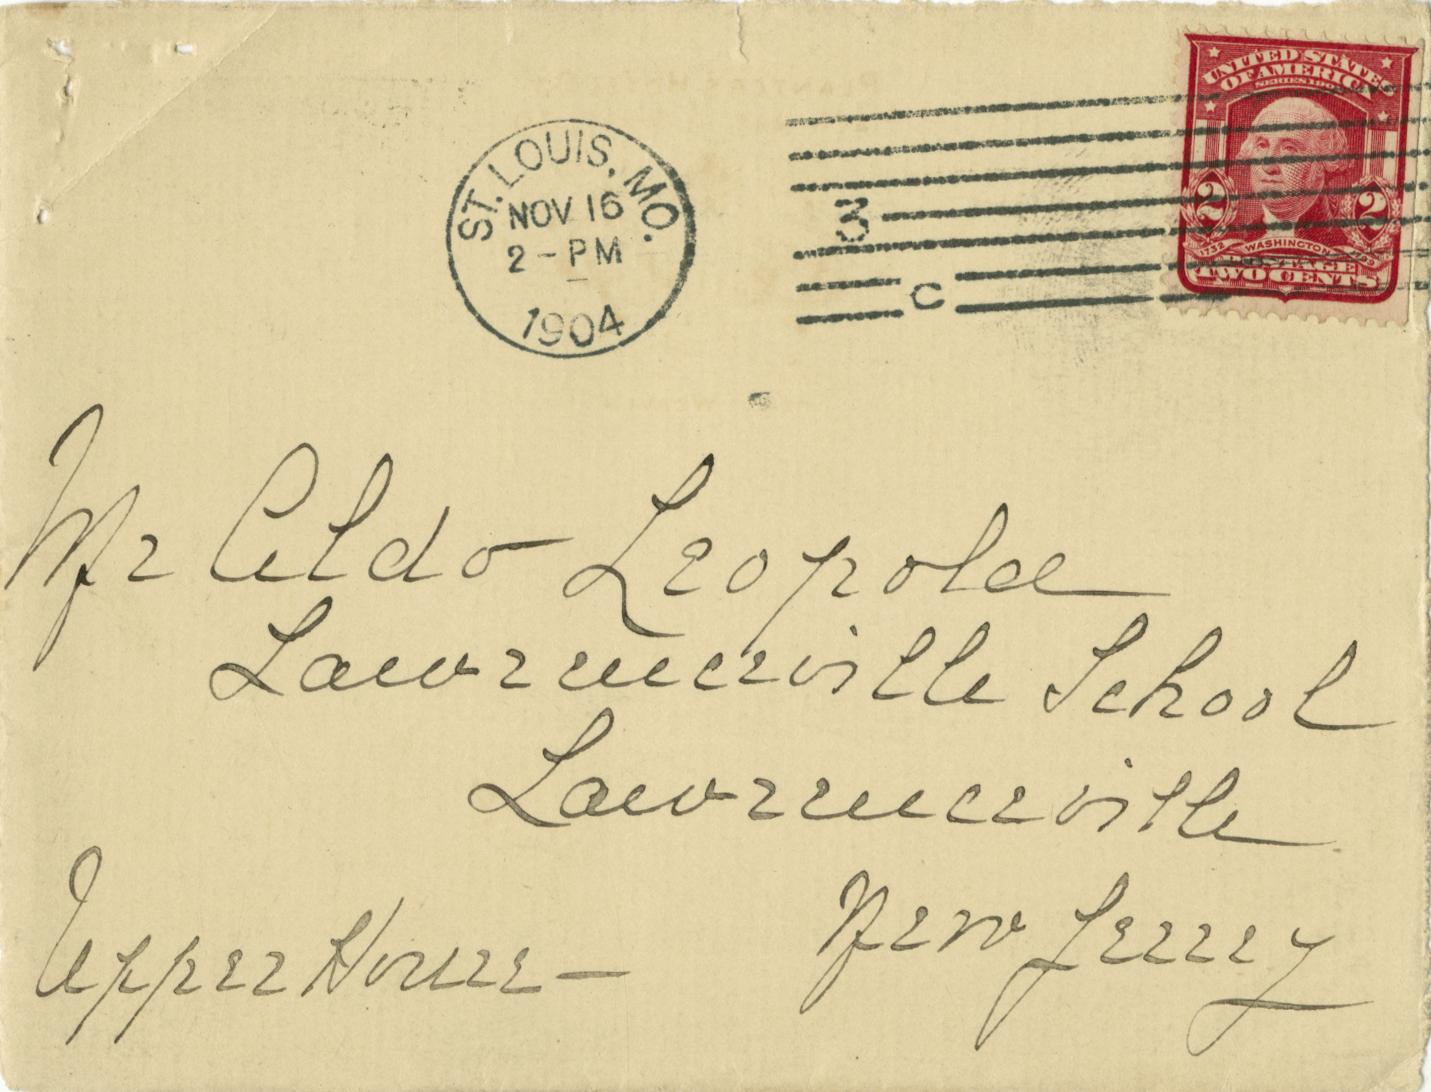 ST. LOUIS, MO.
NOV 16
2-PM
1904
3
C
UNITED STATES
OF AMERICA
SERIES 1902
2 2
1732 WASHINGTON 1799
POSTAGE
TWO CENTS
Mr Aldo Leopold
Lawrenceville School
Lawrenceville
New Jersey
Upper House —